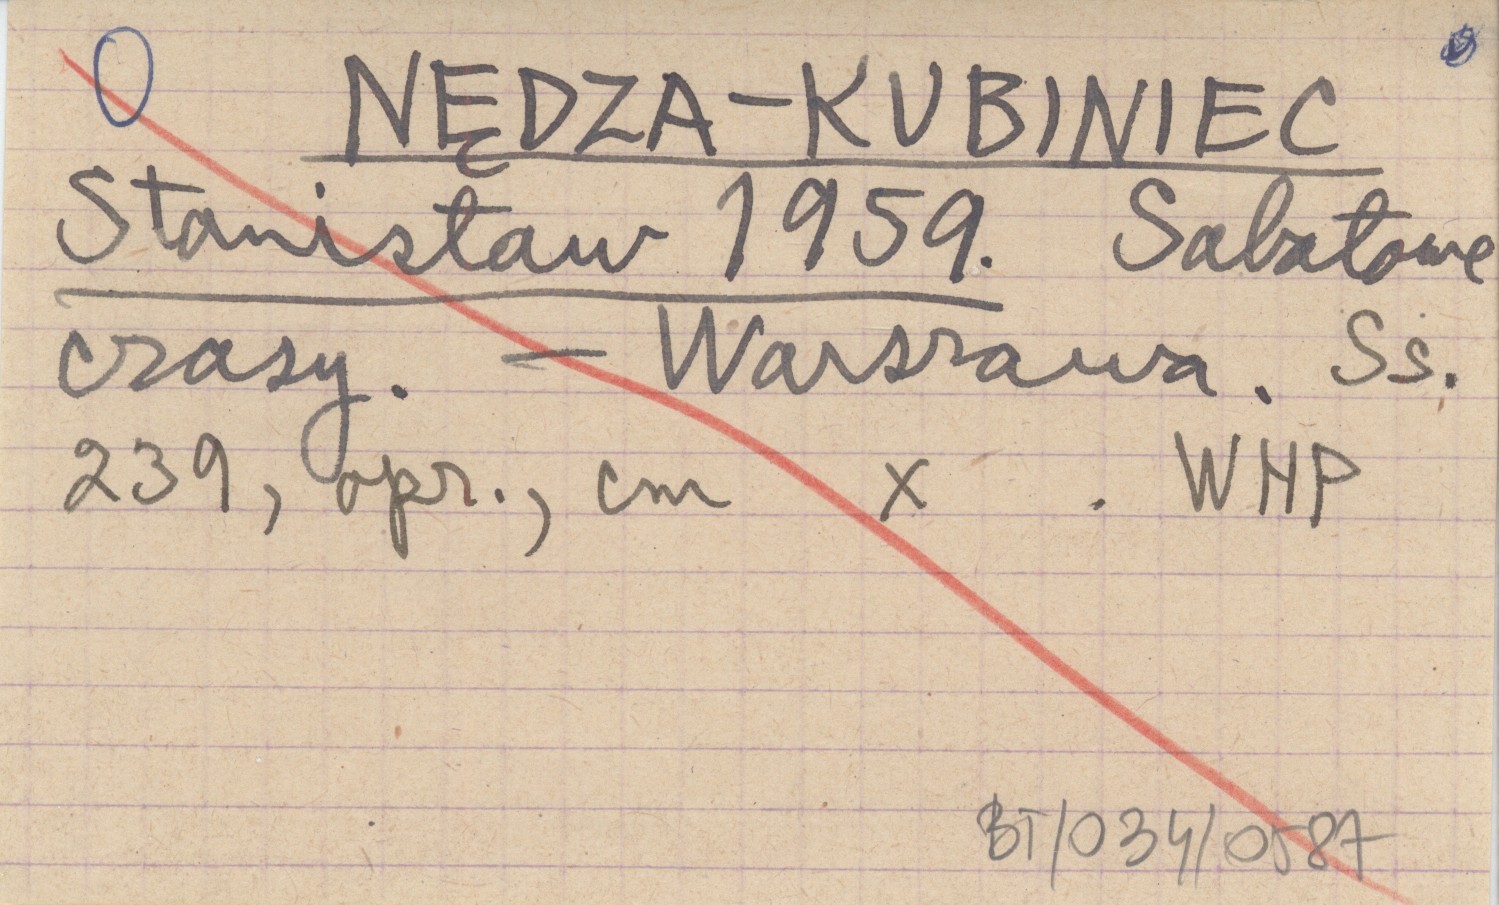 NĘDZA-KUBINIEC
Stanisław 1959. Sabałowe
czasy. — Warszawa. Ss.
239, opr., cm x . WHP
BT/034/0587